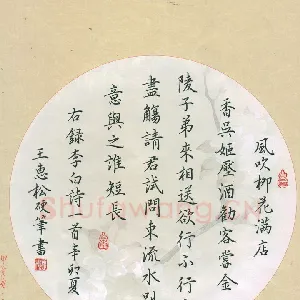 風吹柳花满店
香吴姬壓酒勸客嘗金
陵子弟來相送欲行不行
盡觴請君試問東流水別
意與之誰短長
右録李白詩一首辛卯夏
王惠松硬筆書
Shufawang.cn